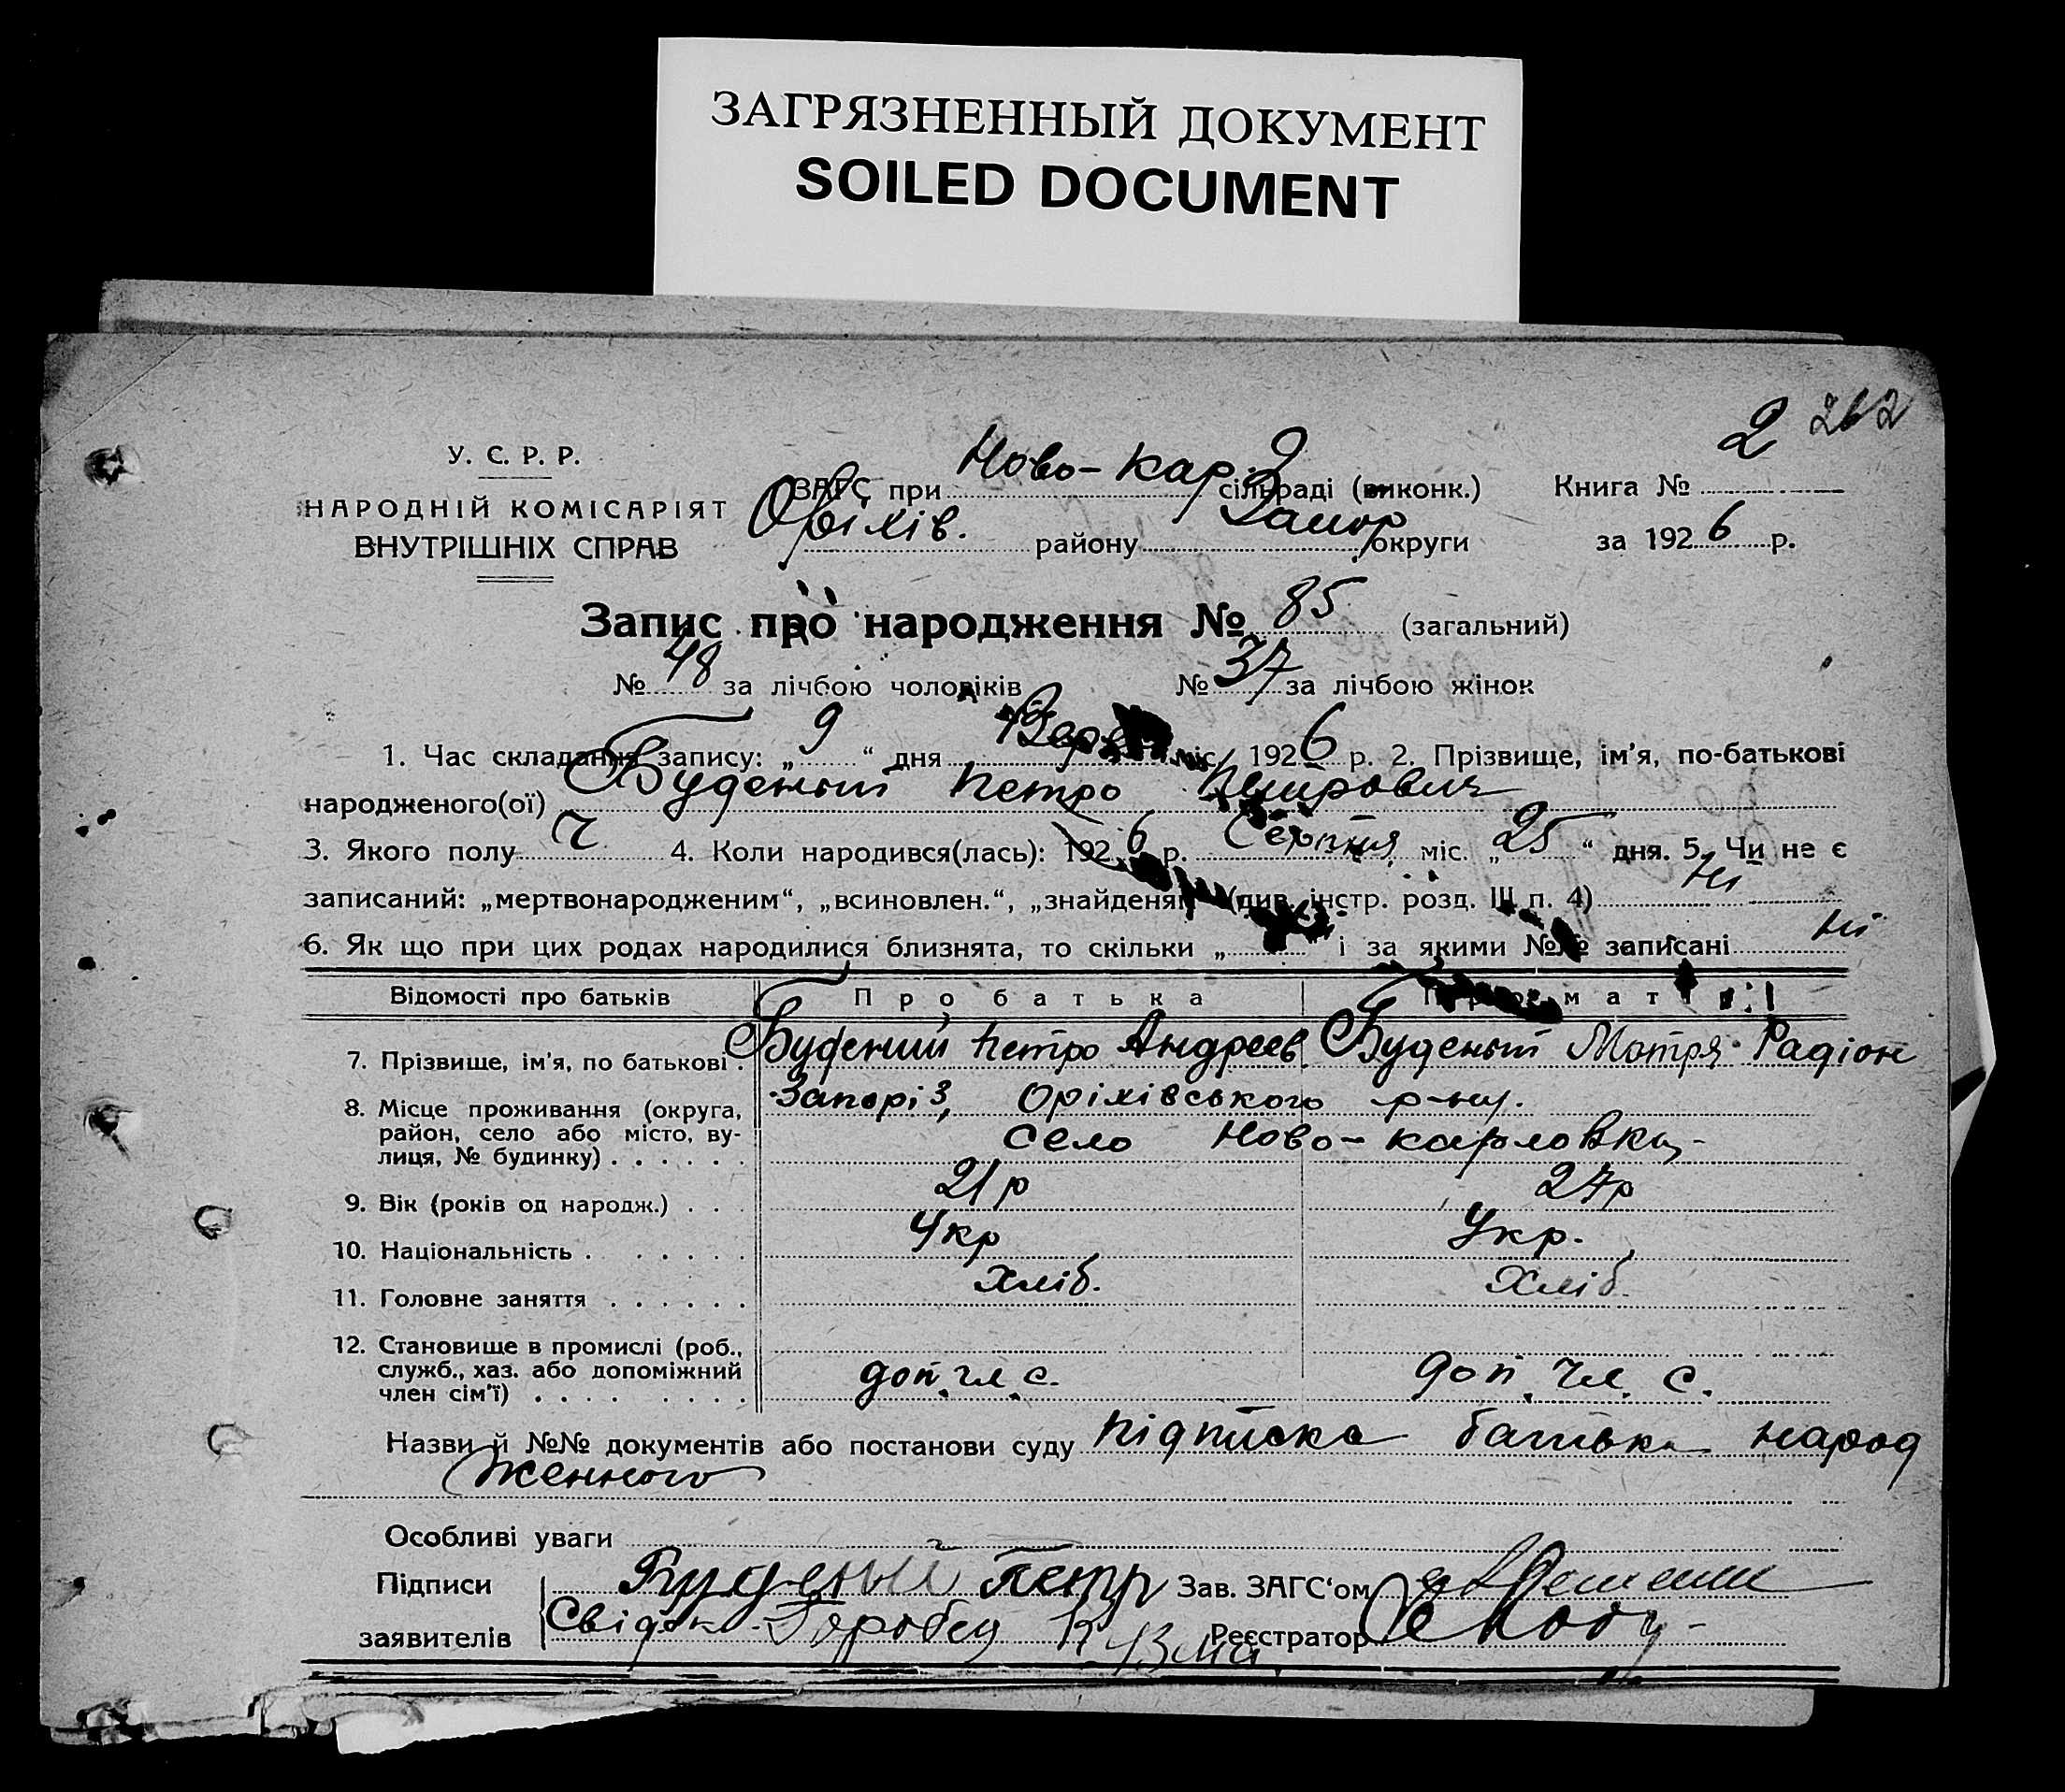 ЗАГРЯЗНЕННЫЙ ДОКУМЕНТ
SOILED DOCUMENT
2 262
У. С. Р. Р.
НАРОДНІЙ КОМІСАРІЯТ
ВНУТРІШНІХ СПРАВ
ЗАГС при Ново-Кар. сільраді (виконк.)
Оріхів. району Запор округи
Книга №
за 1926 р.
Запис про народження № 85 (загальний)
№ 48 за лічбою чоловіків № 37 за лічбою жінок
1. Час складання запису: „9“ дня Вер міс. 1926 р. 2. Прізвище, ім'я, по-батькові
народженого(ої) Буденый Петро Петрович
3. Якого полу ч 4. Коли народився(лась): 1926 р. Серпня міс. „25“ дня. 5. Чи не є
записаний: „мертвонародженим“, „всиновлен.“, „знайденям“ (див. інстр. розд. III п. 4) ні
6. Як що при цих родах народилися близнята, то скільки „ і за якими №№ записані ні
Відомості про батьків Про батька Про матір
7. Прізвище, ім'я, по батькові . Будений Петро Андреев Буденый Мотря Радіон
8. Місце проживання (округа, Запоріз, Оріхівського р-ну.
район, село або місто, ву- село Ново-карловка
лиця, № будинку) . . . . . .
9. Вік (років од народж.) . . . 21 р 27р
10. Національність . . . . . . Укр Укр.
11. Головне заняття . . . . . . Хліб. Хліб.
12. Становище в промислі (роб.,
служб., хаз. або допоміжний доп. чл. с. доп. чл. с.
член сім'ї) . . . . . . . .
Назви й №№ документів або постанови суду підписка батька народ
женного
Особливі уваги
Підписи Буденый Петр Зав. ЗАГС'ом
заявителів Свідок Горобец Реєстратор